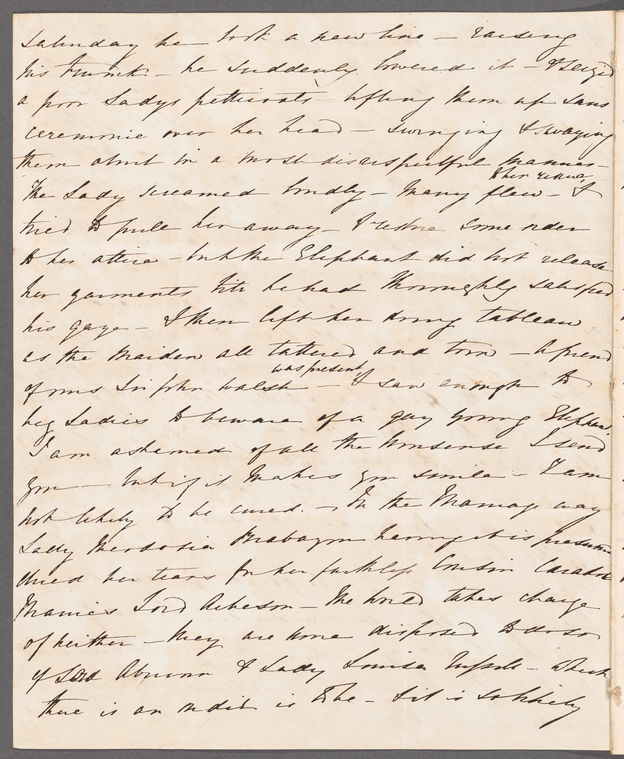 Saturday he took a new line – raising
his trunk – he suddenly lowered it – & seized
a poor Ladys petticoats lifting them up sans
ceremonie over her head – swinging & swaying
them about in a most disrespectful manner –
The Lady screamed loudly – many flew – &
tried to pull her away – & restore some order
to her attire – but the Elephant did not release
her garments till he had thoroughly satisfied
his gaze – & then left her doing tableau
as the Maiden all tattered and torn – A friend
was present
of ours Sir John Walsh – & saw enough to
beg Ladies to beware of a gay young Elephant.
I am ashamed of all the nonsense I send
you – but if it makes you smile – I am
not likely to be cured. – In the Marriage way
Lady Theodosia having it is
dried her tears for her faithless Cousin
Marries Lord Acheson – The World takes charge
of neither – they are more disposed to do so
of Lord & Lady Louisa – which
there is an on dit is to be – & it is so likely